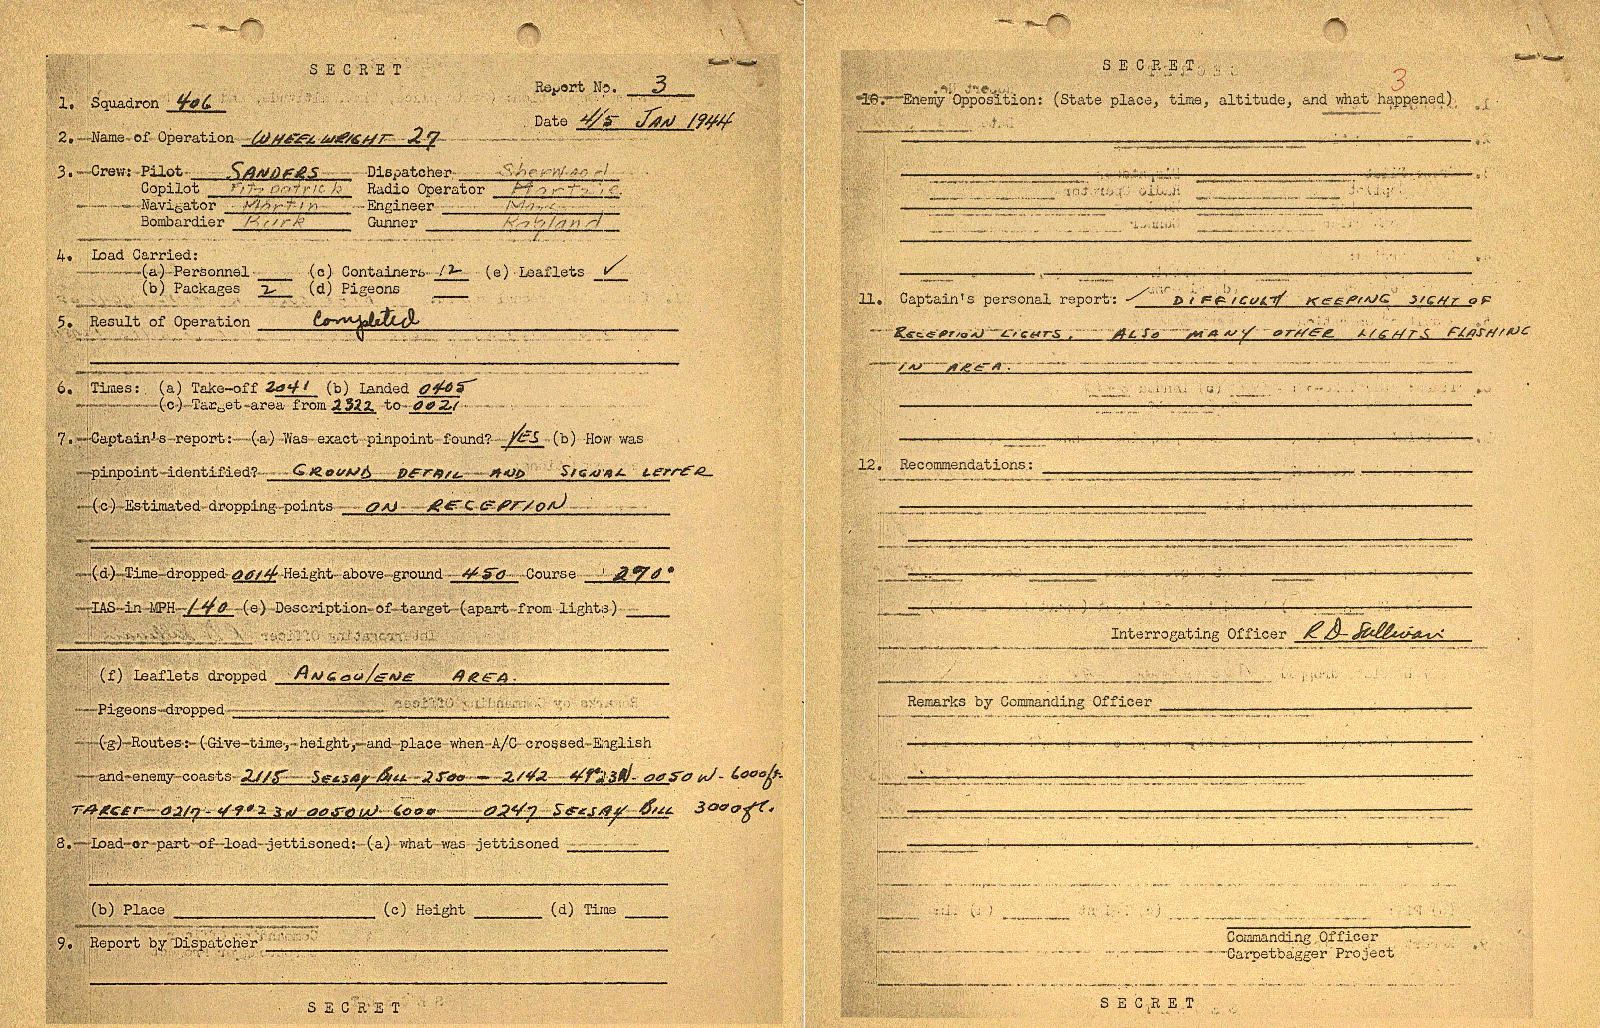 SECRET
Report No. 3
1. Squadron 406
Date 4/5 JAN 1944
2. Name of Operation WHEELWRIGHT 27
3. Crew: Pilot SANDERS Dispatcher Sherwood
Copilot Fitzpatrick Radio Operator
Navigator Martin Engineer
Bombardier Burk Gunner Ragland
4. Load Carried:
(a) Personnel (c) Containers 12 (e) Leaflets ✓
(b) Packages 2 (d) Pigeons
5. Result of Operation Completed
6. Times: (a) Take-off 2041 (b) Landed 0405
(c) Target area from 2322 to 0021
7. Captain's report: (a) Was exact pinpoint found? YES (b) How was
pinpoint identified? GROUND DETAIL AND SIGNAL LETTER
(c) Estimated dropping points ON RECEPTION
(d) Time dropped 0014 Height above ground 450 Course 270°
IAS in MPH 140 (e) Description of target (apart from lights)
(f) Leaflets dropped ANGOULENE AREA.
Pigeons dropped
(g) Routes: (Give time, height, and place when A/C crossed English
and enemy coasts 2115 SELSAY BILL 2500 - 2142 49°23N - 0050W - 6000ft.
TARGET 0217 - 49°23N 0050W 6000 0247 SELSAY BILL 3000ft.
8. Load or part of load jettisoned: (a) what was jettisoned
(b) Place (c) Height (d) Time
9. Report by Dispatcher
SECRET
SECRET
3
10. Enemy Opposition: (State place, time, altitude, and what happened)
11. Captain's personal report: DIFFICULTY KEEPING SIGHT OF
RECEPTION LIGHTS. ALSO MANY OTHER LIGHTS FLASHING
IN AREA.
12. Recommendations:
Interrogating Officer R D Sullivan
Remarks by Commanding Officer
Commanding Officer
Carpetbagger Project
SECRET